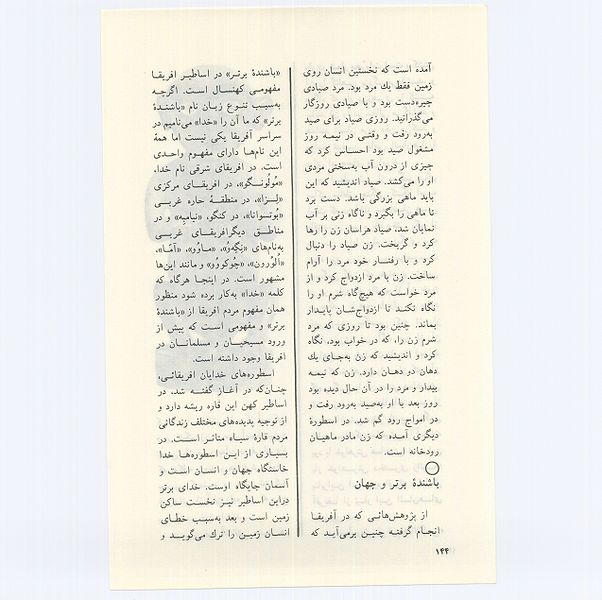 آمده است که نخستین انسان روی
زمین فقط یك مرد بود. مرد صیادی
چیره‌دست بود و با صیادی روزگار
می‌گذرانید. روزی صیاد برای صید
به‌رود رفت و وقتی در نیمه روز
مشغول صید بود احساس کرد که
چیزی از درون آب به‌سختی مردی
او را می‌کشد. صیاد اندیشید که این
باید ماهی بزرگی باشد. دست برد
تا ماهی را بگیرد و ناگاه زنی بر آب
نمایان شد. صیاد هراسان زن را رها
کرد و گریخت. زن صیاد را دنبال
کرد و با رفتار خود مرد را آرام
ساخت. زن با مرد ازدواج کرد و از
مرد خواست که هیچ‌گاه شرم او را
نگاه نکند تا ازدواج‌شان پایدار
بماند. چنین بود تا روزی که مرد
شرم زن را، که در خواب بود، نگاه
کرد و اندیشید که زن به‌جای یك
دهان دو دهان دارد. زن که نیمه
بیدار و مرد را در آن حال دیده بود
روز بعد با او به‌صید به‌رود رفت و
در امواج رود گم شد. در اسطورهٔ
دیگری آمده که زن مادر ماهیان
رودخانه است.
باشندهٔ برتر و جهان
از پژوهش‌هائی که در آفریقا
انجام گرفته چنین برمی‌آید که
«باشندهٔ برتر» در اساطیر افریقا
مفهومی کهنسال است. اگرچه
به‌سبب تنوع زبان نام «باشندهٔ
برتر» که ما آن را «خدا» می‌نامیم در
سراسر آفریقا یکی نیست اما همهٔ
این نام‌ها دارای مفهوم واحدی
است. در افریقای شرقی نام خدا،
«مولُونگو»، در افریقای مرکزی
«لِزا»، در منطقهٔ حاره غربی
«بُوتسوانا»، در کنگو، «نیامبِه» و در
مناطق دیگرافریقای غربی
به‌نام‌های «نِگِه‌وُ»، «ماوُو»، «آمّا»،
«اُلوُرون»، «چُوکووُو» و مانند این‌ها
مشهور است. در اینجا هرگاه که
کلمه «خدا» به‌کار برده شود منظور
همان مفهوم مردم افریقا از «باشندهٔ
برتر» و مفهومی است که پیش از
ورود مسیحیان و مسلمانان در
افریقا وجود داشته است.
اسطوره‌های خدایان افریقائی،
چنان‌که در آغاز گفته شد، در
اساطیر کهن این قاره ریشه دارد و
از توجیه پدیده‌های مختلف زندگانی
مردم قارهٔ سیاه متاثر است. در
بسیاری از این اسطوره‌ها خدا
خاستگاه جهان و انسان است و
آسمان جایگاه اوست. خدای برتر
دراین اساطیر نیز نخست ساکن
زمین است و بعد به‌سبب خطای
انسان زمین را ترك می‌گوید و
۱۴۴